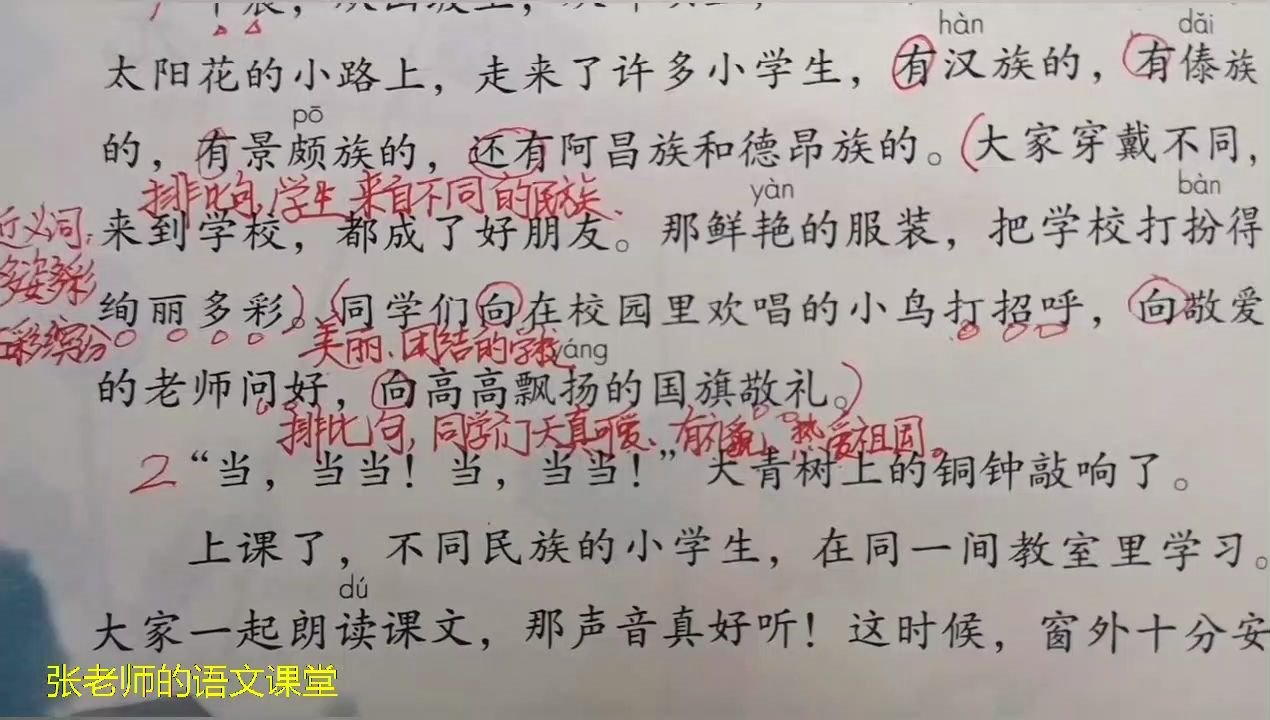 hàn dǎi
太阳花的小路上，走来了许多小学生，有汉族的，有傣族
pō
的，有景颇族的，还有阿昌族和德昂族的。大家穿戴不同，
排比句，学生来自不同的民族、
yàn bàn
近义词：
来到学校，都成了好朋友。那鲜艳的服装，把学校打扮得
多姿多彩
绚丽多彩。同学们向在校园里欢唱的小鸟打招呼，向敬爱
彩缤纷
美丽、团结的学校
yáng
的老师问好，向高高飘扬的国旗敬礼。
排比句，同学们天真可爱、有礼貌，热爱祖国。
2 “当，当当！当，当当！”大青树上的铜钟敲响了。
上课了，不同民族的小学生，在同一间教室里学习。
dú
大家一起朗读课文，那声音真好听！这时候，窗外十分安
张老师的语文课堂